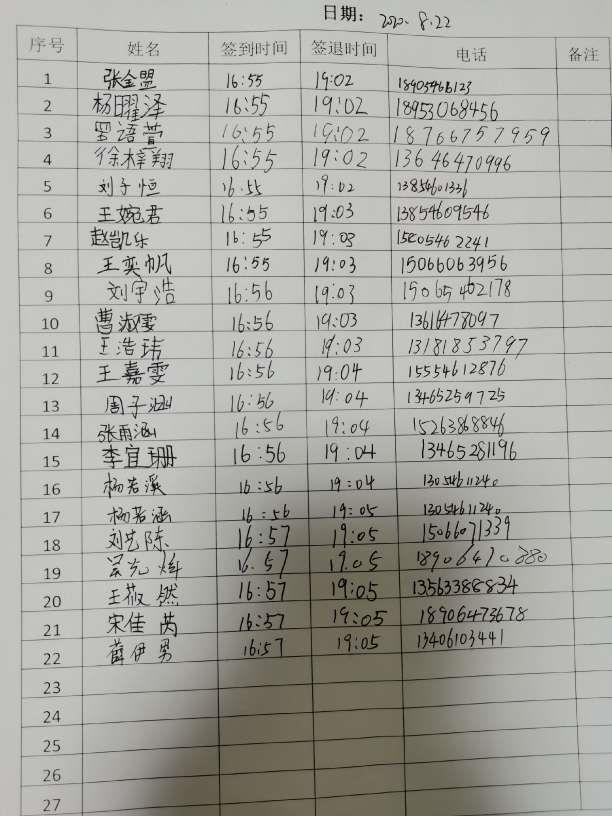 日期: 2020.8.22
序号 姓名 签到时间 签退时间 电话 备注
1 张全盟 16:55 19:02 18905466123
2 杨曜泽 16:55 19:02 18953068456
3 罗语萱 16:55 19:02 18766757959
4 徐梓翔 16:55 19:02 13646470996
5 刘子恒 16.55 19:02 13854601336
6 王婉君 16:55 19:03 13854609546
7 赵凯乐 16:55 19:03
8 王奕帆 16:55 19:03 15066063956
9 刘宇浩 16:56 19:03 15065462178
10 曹淑雯 16:56 19:03 13616478097
11 王浩玮 16:56 19:03 13181853797
12 王嘉雯 16:56 19:04 15554612876
13 周子涵 16:56 19:04 13465259725
14 张雨涵 16:56 19:04 15263868846
15 李宜珊 16:56 19:04 13465281196
16 杨若溪 16:56 19:04 13054611240
17 杨若涵 16:56 19:05 13054611240
18 刘艺陈 16:57 19:05 15066071339
19 16.57 19.05
20 王筱然 16:57 19:05 13563388834
21 宋佳芮 16:57 19:05 18906473678
22 薛伊男 16:57 19:05 13406103441
23
24
25
26
27